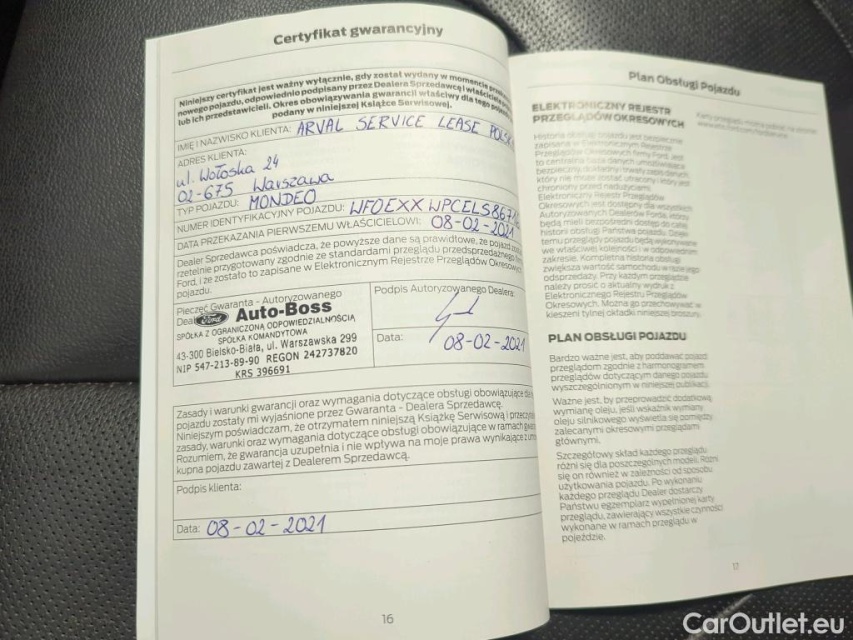 Certyfikat gwarancyjny
Niniejszy certyfikat jest ważny wyłącznie, gdy został wydany w momencie
nowego pojazdu, odpowiednio podpisany przez Dealera Sprzedawcę i właściciela
lub ich przedstawicieli. Okres obowiązywania gwarancji właściwy dla tego
podany w niniejszej Książce Serwisowej.
IMIĘ I NAZWISKO KLIENTA: ARVAL SERVICE LEASE POLSK
ADRES KLIENTA:
ul. Wołoska 24
02-675 Warszawa
TYP POJAZDU: MONDEO
NUMER IDENTYFIKACYJNY POJAZDU: WF0EXXWPCELS867
DATA PRZEKAZANIA PIERWSZEMU WŁAŚCICIELOWI: 08-02-2021
Dealer Sprzedawca poświadcza, że powyższe dane są prawidłowe, że pojazd
rzetelnie przygotowany zgodnie ze standardami przeglądu przedsprzedażnego
Ford, i że zostało to zapisane w Elektronicznym Rejestrze Przeglądów Okresowych
pojazdu.
Pieczęć Gwaranta - Autoryzowanego
Ford Auto-Boss
SPÓŁKA Z OGRANICZONĄ ODPOWIEDZIALNOŚCIĄ
SPÓŁKA KOMANDYTOWA
43-300 Bielsko-Biała, ul. Warszawska 299
NIP 547-213-89-90 REGON 242737820
KRS 396691
Podpis Autoryzowanego Dealera:
Data: 08-02-2021
Zasady i warunki gwarancji oraz wymagania dotyczące obsługi obowiązujące dla
pojazdu zostały mi wyjaśnione przez Gwaranta - Dealera Sprzedawcę.
Niniejszym poświadczam, że otrzymałem niniejszą Książkę Serwisową i
zasady, warunki oraz wymagania dotyczące obsługi obowiązujące w ramach
Rozumiem, że gwarancja uzupełnia i nie wpływa na moje prawa wynikające z
kupna pojazdu zawartej z Dealerem Sprzedawcą.
Podpis klienta:
Data: 08-02-2021
16
Plan Obsługi Pojazdu
ELEKTRONICZNY REJESTR
PRZEGLĄDÓW OKRESOWYCH
Historia obsługi pojazdu jest bezpiecznie
zapisana w Elektronicznym Rejestrze
Przeglądów Okresowych firmy Ford. Jest
to centralna baza danych umożliwiająca
bezpieczny, dokładny i trwały zapis danych,
który nie może zostać utracony i który jest
chroniony przed nadużyciami.
Elektroniczny Rejestr Przeglądów
Okresowych jest dostępny dla wszystkich
Autoryzowanych Dealerów Forda, którzy
będą mieli bezpośredni dostęp do całej
historii obsługi Państwa pojazdu. Dzięki
temu przeglądy pojazdu będą wykonywane
we właściwej kolejności i w odpowiednim
zakresie. Kompletna historia obsługi
zwiększa wartość samochodu w razie jego
odsprzedaży. Przy każdym przeglądzie
należy prosić o aktualny wydruk z
Elektronicznego Rejestru Przeglądów
Okresowych. Można go przechowywać w
kieszeni tylnej okładki niniejszej broszury.
PLAN OBSŁUGI POJAZDU
Bardzo ważne jest, aby poddawać pojazd
przeglądom zgodnie z harmonogramem
przeglądów dotyczącym danego pojazdu
wyszczególnionym w niniejszej publikacji.
Ważne jest, by przeprowadzić dodatkową
wymianę oleju, jeśli wskaźnik wymiany
oleju silnikowego wyświetla się pomiędzy
zalecanymi okresowymi przeglądami
głównymi.
Szczegółowy skład każdego przeglądu
różni się dla poszczególnych modeli. Różni
się on również w zależności od sposobu
użytkowania pojazdu. Po wykonaniu
każdego przeglądu Dealer dostarczy
Państwu egzemplarz wypełnionej karty
przeglądu, zawierający wszystkie czynności
wykonane w ramach przeglądu w
pojeździe.
17
CarOutlet.eu